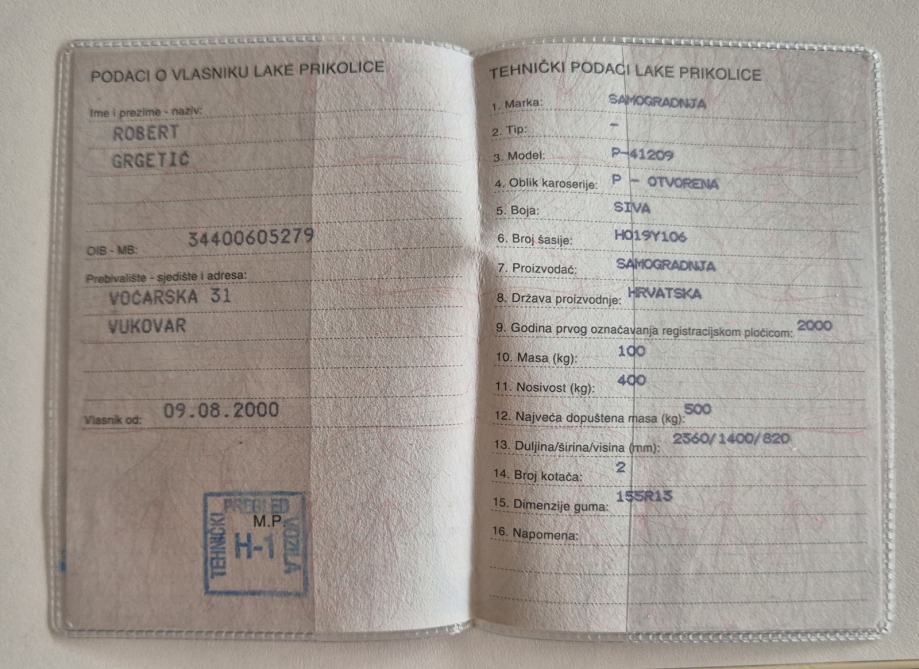 PODACI O VLASNIKU LAKE PRIKOLICE
Ime i prezime - naziv:
ROBERT
GRGETIĆ
OIB - MB: 34400605279
Prebivalište - sjedište i adresa:
VOĆARSKA 31
VUKOVAR
Vlasnik od: 09.08.2000
PREGLED
M.P.
TEHNIČKI
H-1
VOZILA
TEHNIČKI PODACI LAKE PRIKOLICE
1. Marka: SAMOGRADNJA
2. Tip: -
3. Model: P-41209
4. Oblik karoserije: P - OTVORENA
5. Boja: SIVA
6. Broj šasije: H019Y106
7. Proizvođač: SAMOGRADNJA
8. Država proizvodnje: HRVATSKA
9. Godina prvog označavanja registracijskom pločicom: 2000
10. Masa (kg): 100
11. Nosivost (kg): 400
12. Najveća dopuštena masa (kg): 500
13. Duljina/širina/visina (mm): 2360/1400/820
14. Broj kotača: 2
15. Dimenzije guma: 155R13
16. Napomena: